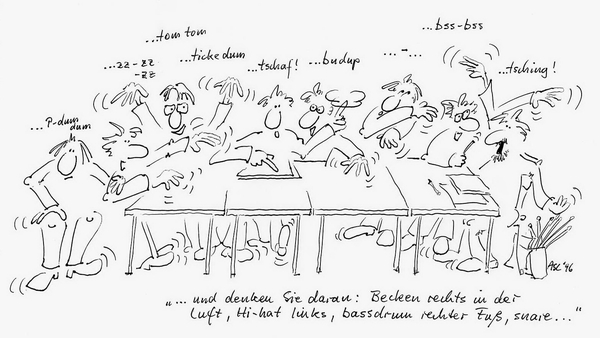 ...tom tom
...bss-bss
...zz-zz
-zz
...tickedum
...tschaf!
...budup
...-...
...tsching!
...P-dum
dum
ASC '96
"... und denken Sie daran: Becken rechts in der
Luft, Hi-hat links, bassdrum rechter Fuß, snare..."